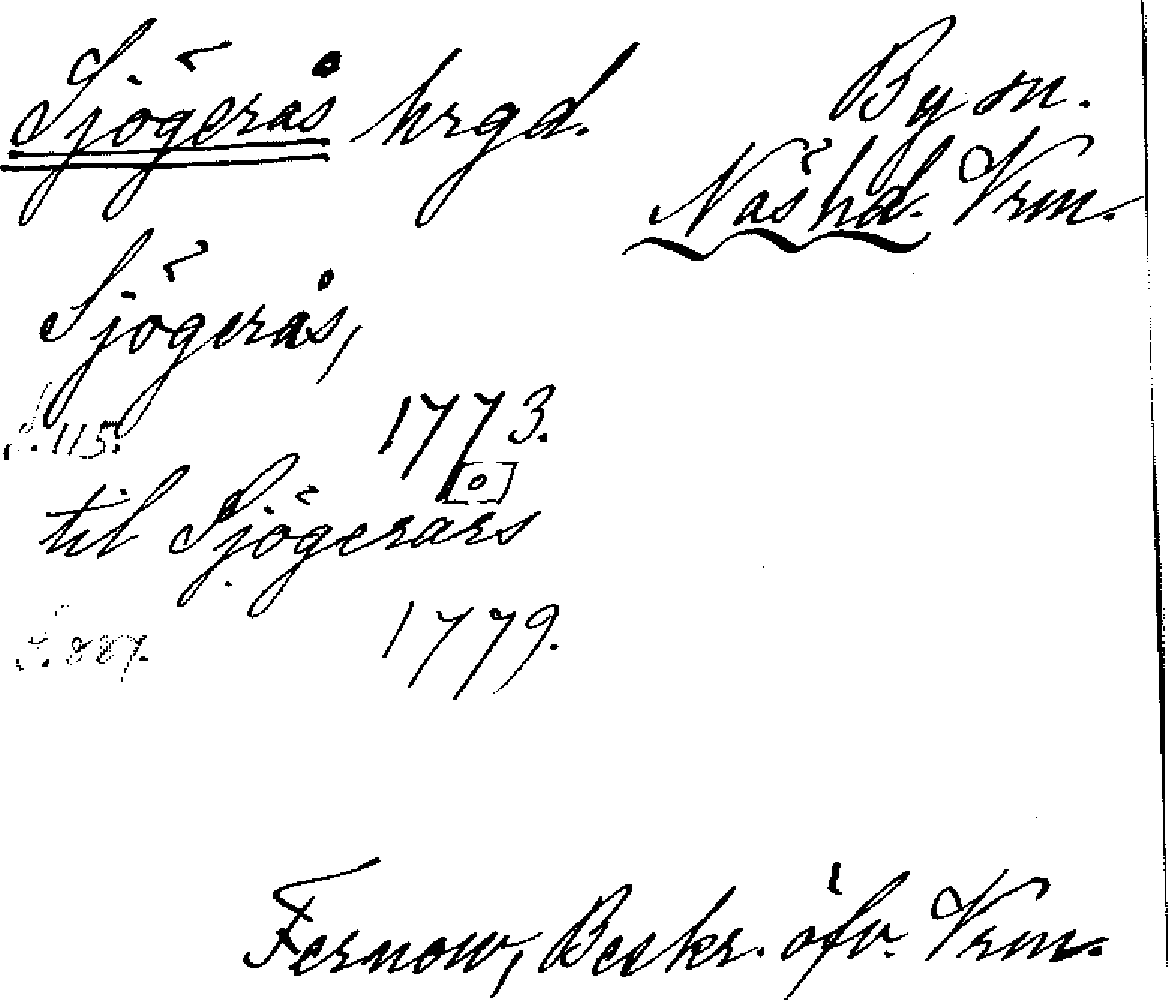 Sjögerås hrgd.
By sn.
Näs hd. Vrm.
Sjögerås,
S. 115.
1773.
[o]
til Sjögerars
S. 887.
1779.
Fernow, Beskr. öfv. Vrm.